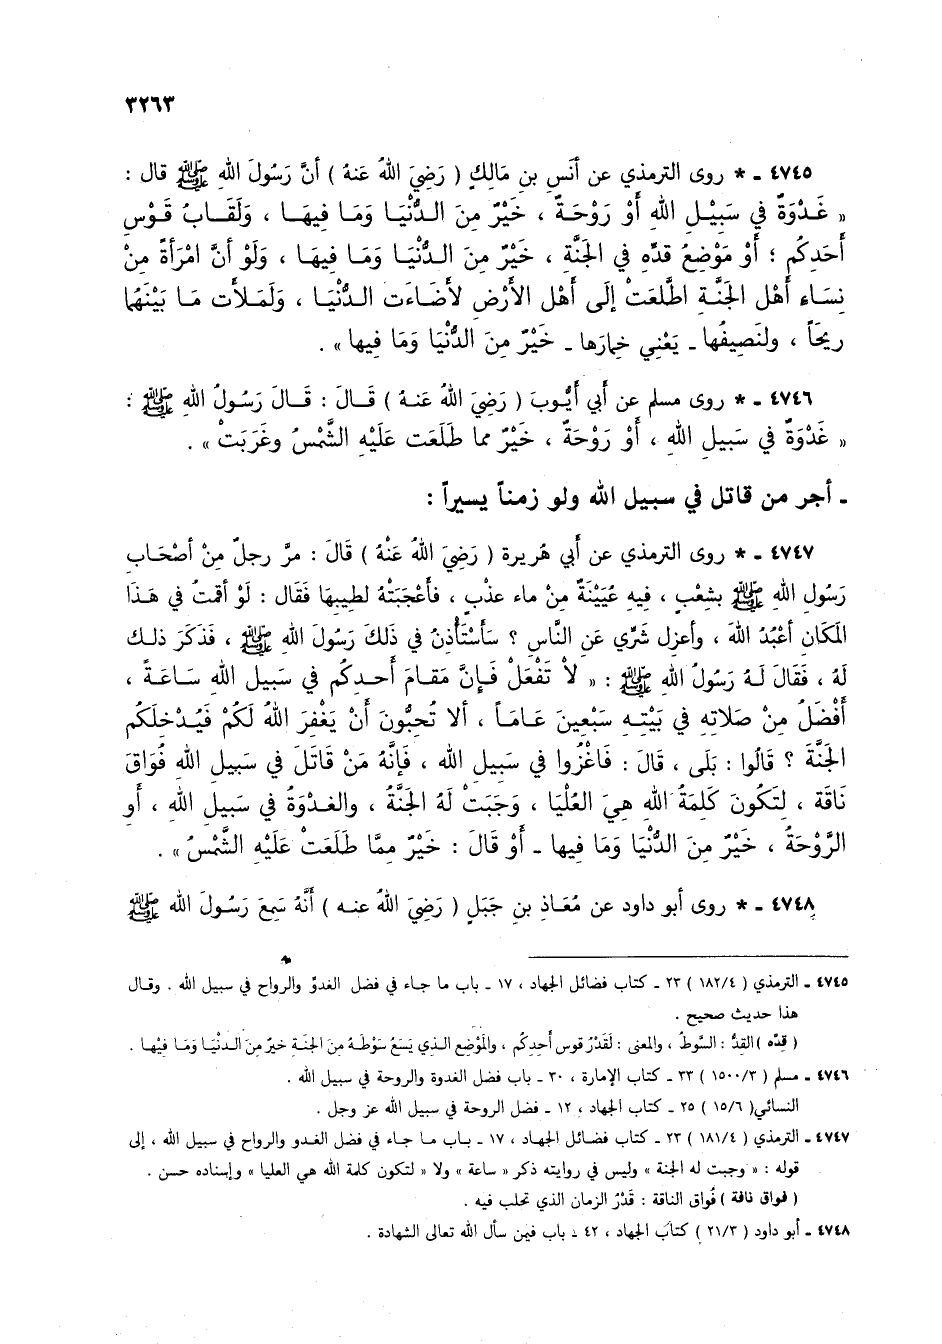 ٣٢٦٣
٤٧٤٥ ـ * روى الترمذي عن أَنَسِ بنِ مَالِكٍ ( رَضِيَ اللهُ عَنهُ ) أنَّ رَسُولَ اللهِ ﷺ قال :
« غَدْوَةٌ في سَبِيْلِ اللهِ أَوْ رَوْحَةٌ ، خَيْرٌ مِنَ الدُّنْيَا وَمَا فِيهَا ، وَلَقَابُ قَوْسِ
أَحَدِكُم ؛ أَوْ مَوْضِعُ قدّهِ في الجَنَّةِ ، خَيْرٌ مِنَ الدُّنْيَا وَمَا فِيهَا ، وَلَوْ أنَّ امْرَأةً مِنْ
نِسَاءِ أَهْلِ الجَنَّةِ اطَّلَعَتْ إلَى أَهْلِ الأَرْضِ لأَضَاءَت الدُّنْيَا ، وَلَمَلأَت مَا بَيْنَهُما
رِيحَاً ، ولَنَصِيفُها ـ يَعْنِي خِمارَها ـ خَيْرٌ مِنَ الدُّنْيَا وَمَا فِيها » .
٤٧٤٦ ـ * روى مسلم عن أبي أَيُّوبَ ( رَضِيَ اللهُ عَنهُ ) قَالَ : قَالَ رَسُولُ اللهِ ﷺ :
« غَدْوَةٌ في سَبِيلِ اللهِ ، أَوْ رَوْحَةٌ ، خَيْرٌ مما طَلَعَت عَلَيْهِ الشَّمْسُ وغَرَبَتْ » .
ـ أجر من قاتل في سبيل الله ولو زمناً يسيراً :
٤٧٤٧ ـ * روى الترمذي عن أبي هُريرة ( رَضِيَ اللهُ عَنْهُ ) قَالَ : مرَّ رجلٌ مِنْ أَصْحَابِ
رَسُولِ اللهِ ﷺ بشِعْبٍ ، فيهِ عُيَيْنَةٌ مِنْ ماء عذْبٍ ، فأَعْجَبَتْهُ لطيبِهَا فَقَال : لَوْ أقمتُ في هَذَا
المَكَان أَعْبُدُ اللهَ ، وأعزِل شَرِّي عَنِ النَّاسِ ؟ سَأَسْتَأْذِنُ في ذَلكَ رَسُولَ اللهِ ﷺ ، فَذَكَرَ ذلكَ
لَهُ ، فَقَالَ لَهُ رَسُولُ اللهِ ﷺ : « لاَ تَفْعَلْ فَإنَّ مَقامَ أحدِكُم في سَبيلِ اللهِ سَاعَةً ،
أَفْضَلُ مِنْ صَلاتِهِ في بَيْتِهِ سَبْعِينَ عَامَاً ، ألا تُحِبُّونَ أَنْ يَغْفِرَ اللهُ لَكُمْ فَيُدْخِلَكُم
الجَنَّةَ ؟ قَالُوا : بَلَى ، قَالَ : فَاغْزُوا في سَبِيلِ الله ، فَإنَّهُ مَنْ قَاتَلَ في سَبِيلِ اللهِ فُوَاقَ
نَاقَة ، لِتَكُونَ كَلِمَةُ اللهِ هِيَ العُلْيَا ، وَجَبَتْ لَهُ الجَنَّةُ ، والغدْوَةُ في سَبِيلِ اللهِ ، أو
الرَّوْحَةُ ، خَيْرٌ مِنَ الدُّنْيَا وَمَا فِيها ـ أَوْ قَالَ : خَيْرٌ مِمَّا طَلَعَتْ عَلَيْهِ الشَّمْسُ » .
٤٧٤٨ ـ * روى أبو داود عن مُعَاذِ بنِ جَبَلٍ ( رَضِيَ اللهُ عنه ) أَنَّهُ سَمِعَ رَسُولَ اللهِ ﷺ
٤٧٤٥ ـ الترمذي ( ١٨٢/٤ ) ٢٣ ـ كتاب فضائل الجهاد ، ١٧ ـ باب ما جاء في فضل الغدوِّ والرواح في سبيل الله . وقال
هذا حديث صحيح .
( قِدّه ) القِدُّ : السَّوطُ ، والمعنى : لَقَدْرُ قوس أحدِكُم ، والمَوْضِع الذي يَسَعُ سَوْطَهُ مِنَ الجنَّةِ خيرٌ مِنَ الدنْيَا وَمَا فيْهَا .
٤٧٤٦ ـ مسلم ( ١٥٠٠/٣ ) ٣٣ ـ كتاب الإمارة ، ٣٠ ـ باب فضل الغدوة والروحة في سبيل الله .
النسائي ( ١٥/٦ ) ٢٥ ـ كتاب الجهاد ، ١٢ ـ فضل الروحة في سبيل الله عز وجل .
٤٧٤٧ ـ الترمذي ( ١٨١/٤ ) ٢٣ ـ كتاب فضائل الجهاد ، ١٧ ـ باب ما جاء في فضل الغدو والرواح في سبيل الله ، إلى
قوله : « وجبت له الجنة » وليس في روايته ذكر « ساعة » ولا « لتكون كلمة الله هي العليا » وإسناده حسن .
( فواق ناقة ) فُواق الناقة : قَدْرُ الزمان الذي تحلب فيه .
٤٧٤٨ ـ أبو داود ( ٢١/٣ ) كتاب الجهاد ، ٤٢ ـ باب فيمن سأل الله تعالى الشهادة .